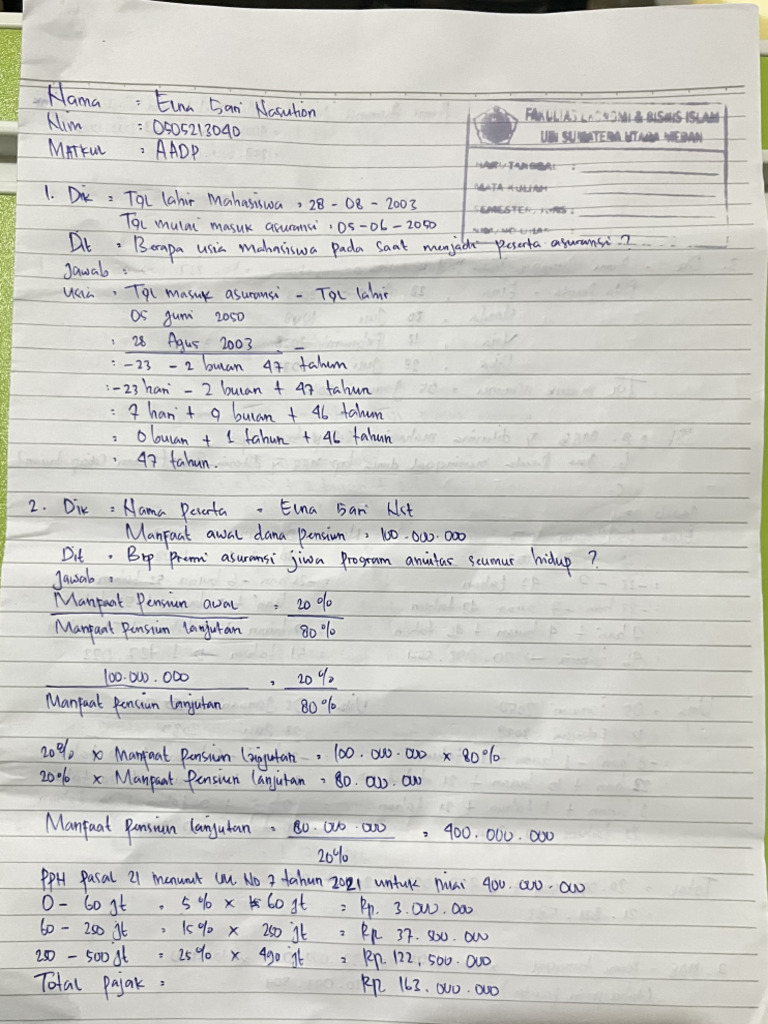 Nama : Elna Sari Nasution
Nim : 0505213040
MATKUL : AADP
FAKULTAS EKONOMI & BISNIS ISLAM
UIN SUMATERA UTARA MEDAN
HARI/TANGGAL :
MATA KULIAH :
SEMESTER/JURS :
1. Dik : Tgl lahir Mahasiswa : 28 - 08 - 2003
Tgl mulai masuk asuransi : 05 - 06 - 2050
Dit : Berapa usia mahasiswa pada saat menjadi peserta asuransi ?
Jawab :
usia : Tgl masuk asuransi - Tgl lahir
05 Juni 2050
: 28 Agus 2003 -
: -23 - 2 bulan 47 tahun
: -23 hari - 2 bulan + 47 tahun
: 7 hari + 9 bulan + 46 tahun
: 0 bulan + 1 tahun + 46 tahun
: 47 tahun.
2. Dik : Nama Peserta : Elna Sari Nst
Manfaat awal dana pensiun : 100.000.000
Dit : Brp Premi asuransi jiwa program anuitas seumur hidup ?
Jawab :
Manfaat Pensiun awal : 20%
Manfaat Pensiun lanjutan 80%
100.000.000 : 20%
Manfaat Pensiun lanjutan 80%
20% x Manfaat Pensiun lanjutan : 100.000.000 x 80%
20% x Manfaat Pensiun lanjutan : 80.000.000
Manfaat Pensiun lanjutan = 80.000.000 = 400.000.000
20%
PPH Pasal 21 menurut UU No 7 tahun 2021 untuk nilai 400.000.000
0 - 60 jt : 5% x 60 jt = Rp. 3.000.000
60 - 250 jt : 15% x 250 jt = Rp. 37.500.000
250 - 500 jt : 25% x 490 jt = Rp. 122.500.000
Total pajak : Rp. 163.000.000